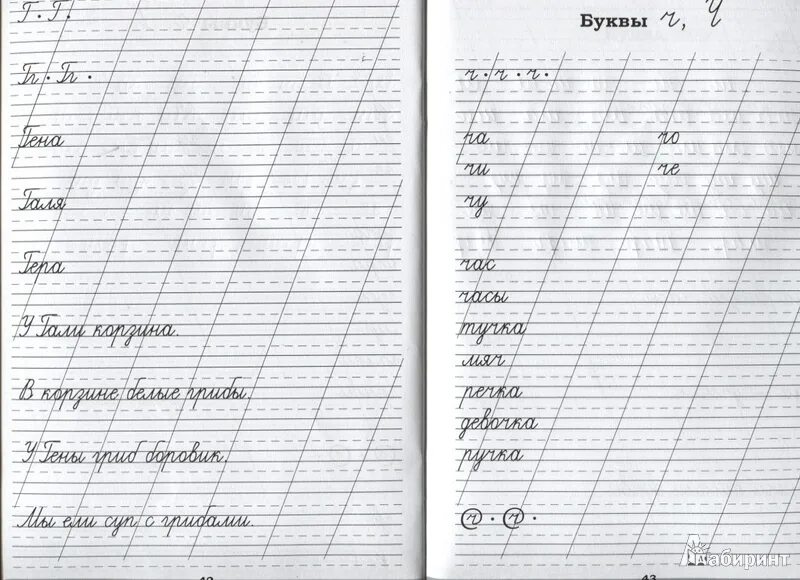 Г. Г.
Гг. Гг.
Гена
Галя
Гера
У Гали корзина.
В корзине белые грибы.
У Гены гриб боровик.
Мы ели суп с грибами.
42
Буквы ч, Ч
ч. ч. ч.
ча чо
чи че
чу
час
часы
тучка
мяч
речка
девочка
ручка
ч. ч.
43
Лабиринт